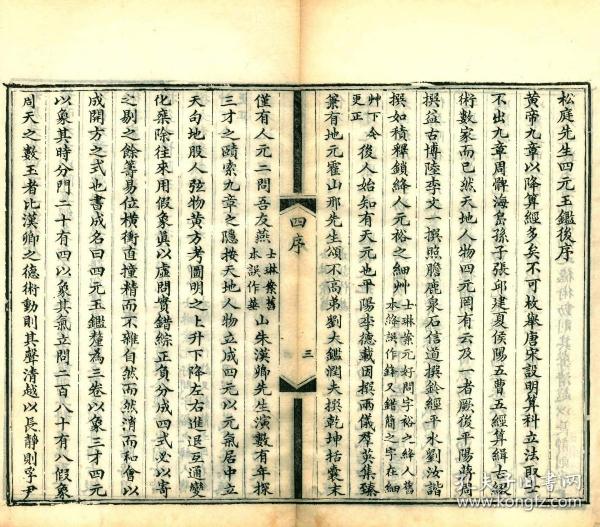 松庭先生四元玉鑑後序
黃帝九章以降算經多矣不可枚舉唐宋設明算科立法取士
不出九章周髀海島孫子張邱建夏侯陽五曹五經算緝古綴
術數家而已然天地人物四元罔有云及一者厥後平陽蔣周
撰益古博陸李文一撰照膽鹿泉石信道撰鈐經平水劉汝諧
撰如積釋鎖絳人元裕之細艸士琳案元好問字裕之絳人舊本絳誤作鋒又錯簡之字在細
艸下今更正後人始知有天元也平陽李德載因撰兩儀羣英集臻
兼有地元霍山邢先生頌不高弟劉大鑑潤夫撰乾坤括囊末
僅有人元二問吾友燕士琳案舊本誤作華山朱漢卿先生演數有年探
三才之賾索九章之隱按天地人物立成四元以元氣居中立
天勾地股人弦物黃方考圖明之上升下降左右進退互通變
化乘除往來用假象真以虛問實錯綜正負分成四式必以寄
之剔之餘籌易位橫衝直撞精而不雜自然而然消而和會以
成開方之式也書成名曰四元玉鑑釐為三卷以象三才四元
以象其時分門二十有四以象其氣立問二百八十有八假象
周天之數王者比漢卿之德術動則其聲清越以長靜則孚尹
四序
三
孔夫子旧书网
kongfz.com